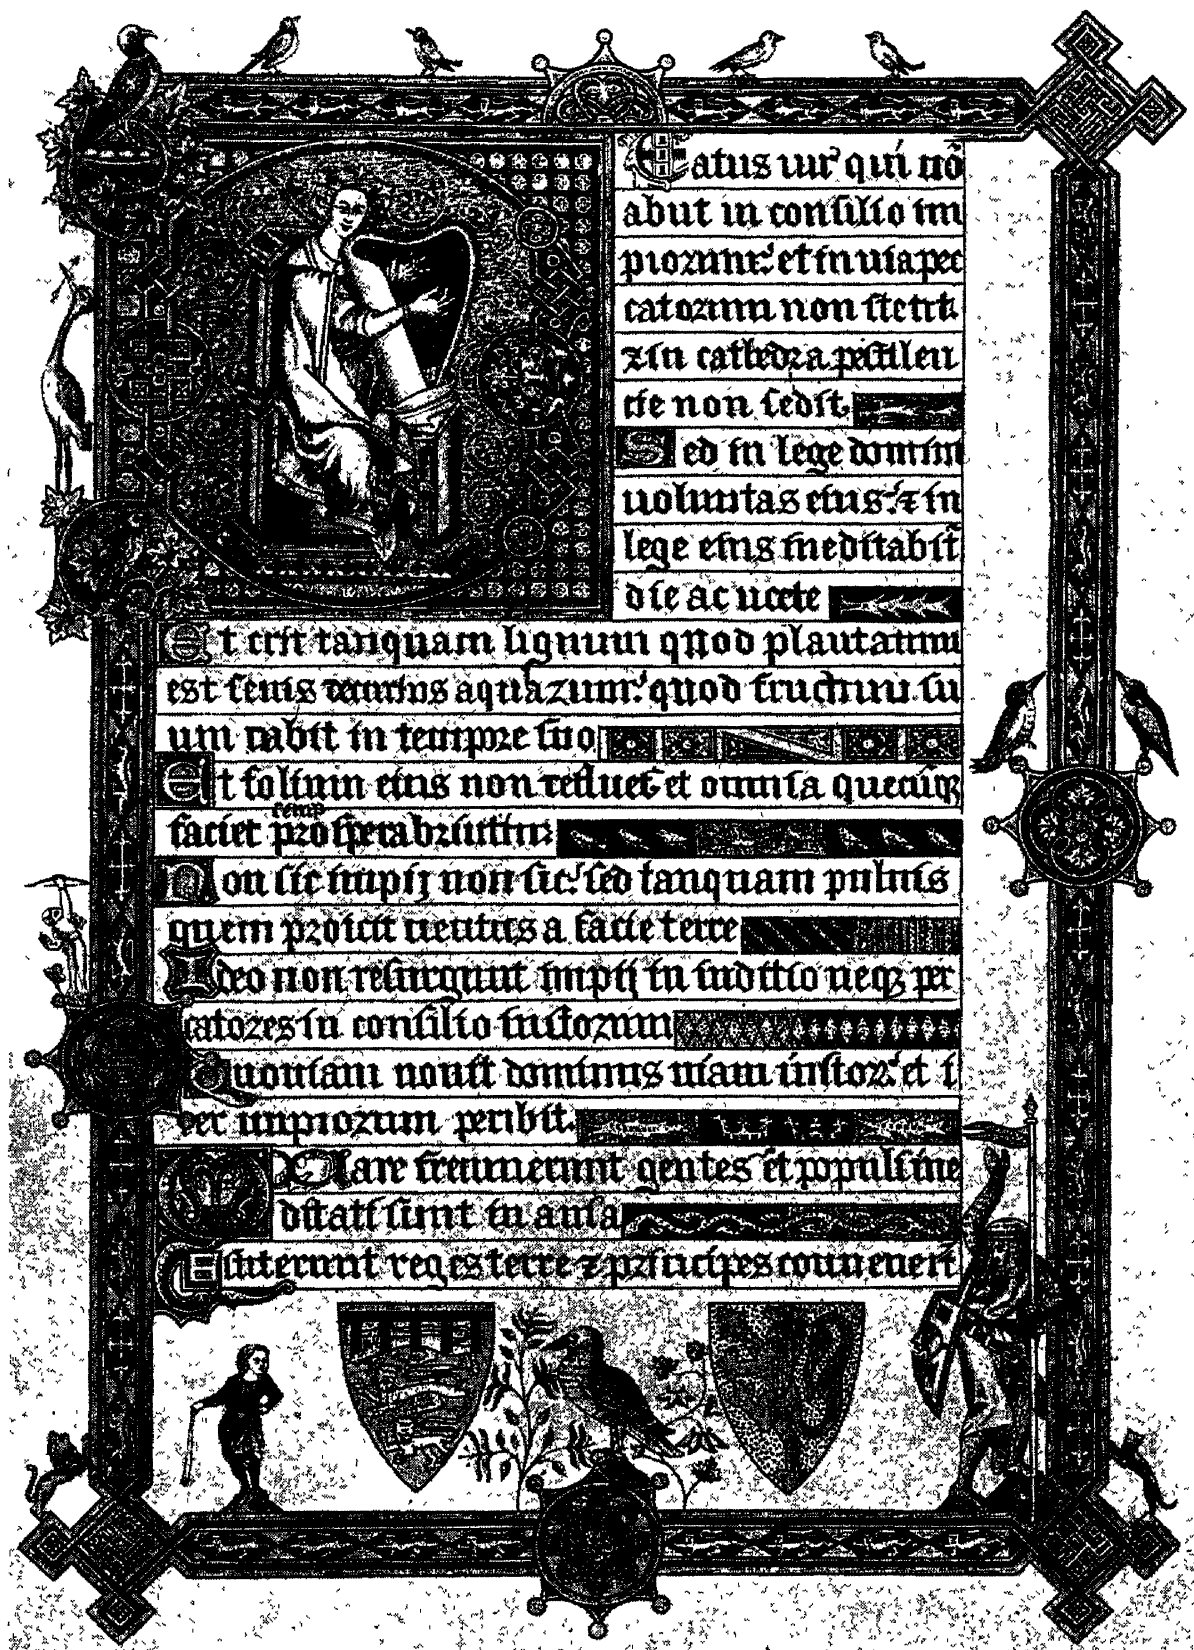 Eatus uir qui nō
abiit in consilio im
piorum: et in uia pec
catorum non stetit
⁊ in cathedra pestilen
tie non sedit.
Sed in lege domini
uoluntas eius: ⁊ in
lege eius meditabit̄
die ac nocte
Et erit tanquam lignum quod plantatum
est secus decursus aquarum: quod fructum su
um dabit in tempore suo
Et folium eius non defluet: et omnia quecūq3
faciet prosperabuntur
Non sic impij non sic: sed tanquam puluis
quem proicit uentus a facie terre
Ideo non resurgunt impij in iudicio neq3 pec
catores in consilio iustorum
Quoniam nouit dominus uiam iustor̄: et i
ter impiorum peribit.
Quare fremuerunt gentes et populi me
ditati sunt in ania
Astiterunt reges terre ⁊ principes conuener̄t